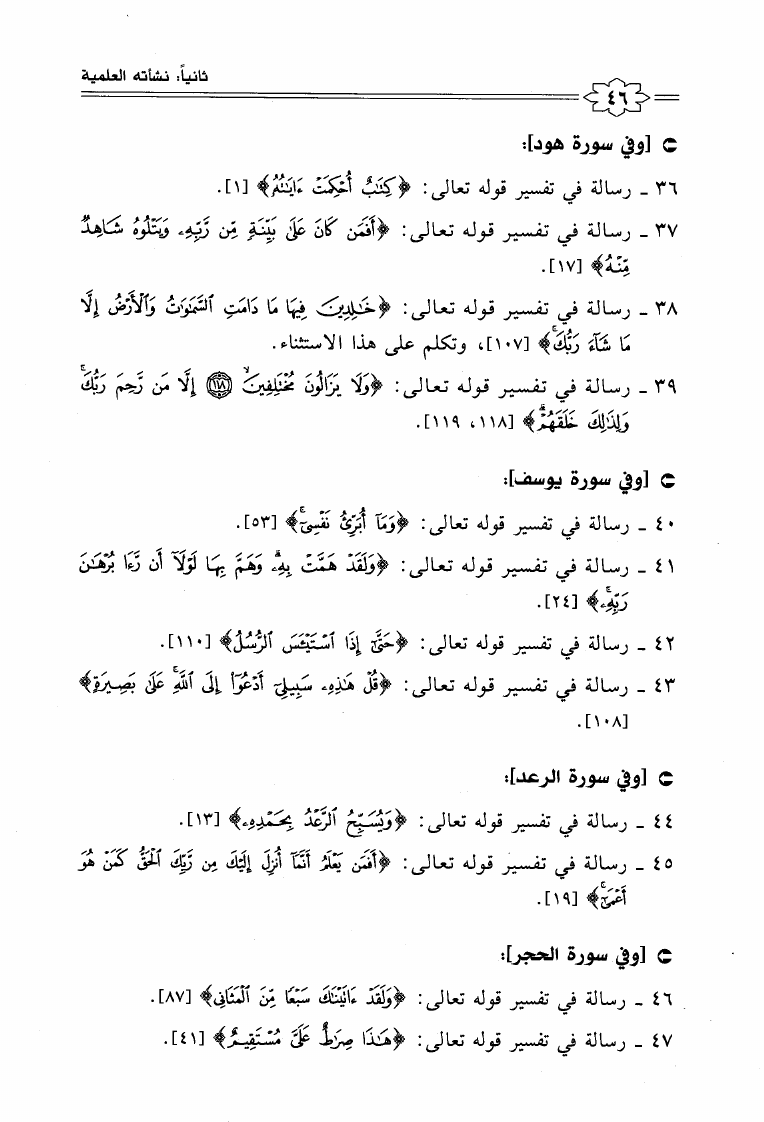 ثانياً: نشأته العلمية
٤٦
[وفي سورة هود]:
٣٦ - رسالة في تفسير قوله تعالى: ﴿كِتَٰبٌ أُحْكِمَتْ ءَايَٰتُهُۥ﴾ [١].
٣٧ - رسالة في تفسير قوله تعالى: ﴿أَفَمَن كَانَ عَلَىٰ بَيِّنَةٍ مِّن رَّبِّهِۦ وَيَتْلُوهُ شَاهِدٌ
مِّنْهُ﴾ [١٧].
٣٨ - رسالة في تفسير قوله تعالى: ﴿خَٰلِدِينَ فِيهَا مَا دَامَتِ ٱلسَّمَٰوَٰتُ وَٱلْأَرْضُ إِلَّا
مَا شَآءَ رَبُّكَ ۚ﴾ [١٠٧]، وتكلم على هذا الاستثناء.
٣٩ - رسالة في تفسير قوله تعالى: ﴿وَلَا يَزَالُونَ مُخْتَلِفِينَ ۙ ١١٨ إِلَّا مَن رَّحِمَ رَبُّكَ ۚ
وَلِذَٰلِكَ خَلَقَهُمْ ۗ﴾ [١١٨، ١١٩].
[وفي سورة يوسف]:
٤٠ - رسالة في تفسير قوله تعالى: ﴿وَمَآ أُبَرِّئُ نَفْسِىٓ ۚ﴾ [٥٣].
٤١ - رسالة في تفسير قوله تعالى: ﴿وَلَقَدْ هَمَّتْ بِهِۦ ۖ وَهَمَّ بِهَا لَوْلَآ أَن رَّءَا بُرْهَٰنَ
رَبِّهِۦ ۚ﴾ [٢٤].
٤٢ - رسالة في تفسير قوله تعالى: ﴿حَتَّىٰٓ إِذَا ٱسْتَيْـَٔسَ ٱلرُّسُلُ﴾ [١١٠].
٤٣ - رسالة في تفسير قوله تعالى: ﴿قُلْ هَٰذِهِۦ سَبِيلِىٓ أَدْعُوٓا۟ إِلَى ٱللَّهِ ۚ عَلَىٰ بَصِيرَةٍ﴾
[١٠٨].
[وفي سورة الرعد]:
٤٤ - رسالة في تفسير قوله تعالى: ﴿وَيُسَبِّحُ ٱلرَّعْدُ بِحَمْدِهِۦ﴾ [١٣].
٤٥ - رسالة في تفسير قوله تعالى: ﴿أَفَمَن يَعْلَمُ أَنَّمَآ أُنزِلَ إِلَيْكَ مِن رَّبِّكَ ٱلْحَقُّ كَمَنْ هُوَ
أَعْمَىٰٓ ۚ﴾ [١٩].
[وفي سورة الحجر]:
٤٦ - رسالة في تفسير قوله تعالى: ﴿وَلَقَدْ ءَاتَيْنَٰكَ سَبْعًا مِّنَ ٱلْمَثَانِى﴾ [٨٧].
٤٧ - رسالة في تفسير قوله تعالى: ﴿هَٰذَا صِرَٰطٌ عَلَىَّ مُسْتَقِيمٌ﴾ [٤١].